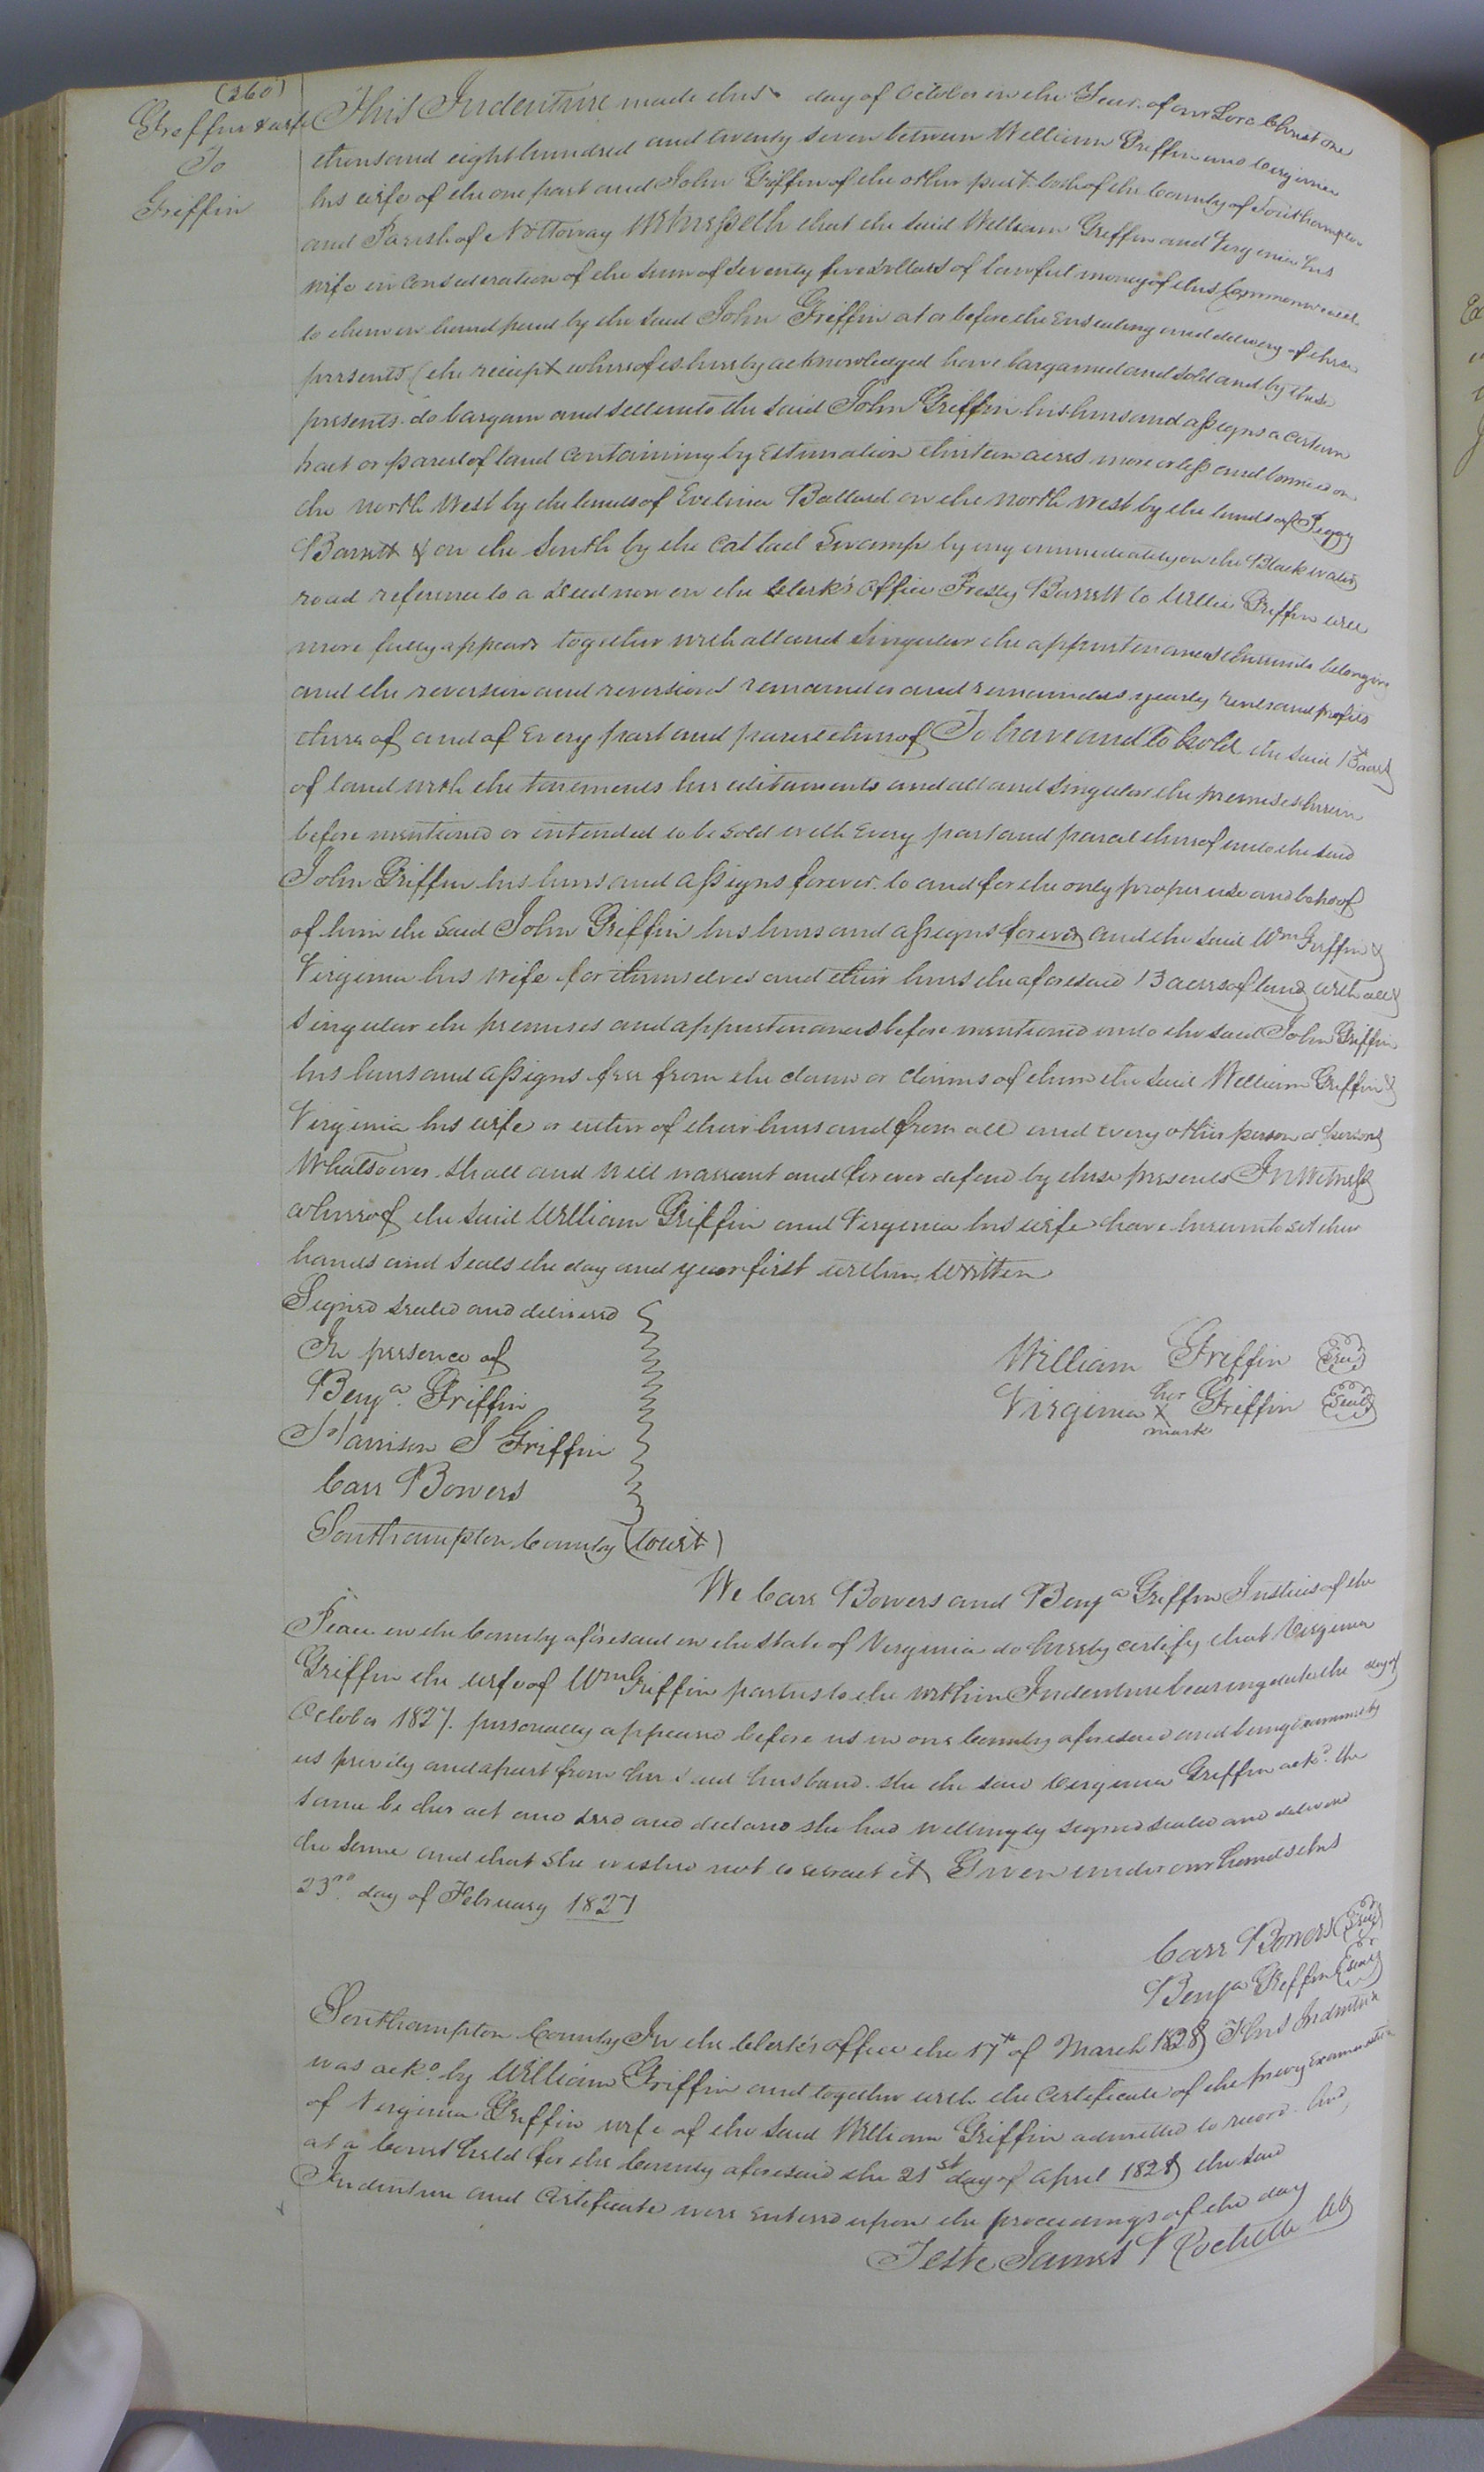 (260)
Griffin & wife
To
Griffin
This Indenture made this day of October in the Year of our Lord Christ one
thousand eight hundred and twenty seven between William Griffin and Virginia
his wife of the one part and John Griffin of the other part both of the County of Southampton
and Parish of Nottoway Witnesseth that the said William Griffin and Virginia his
wife in Consideration of the sum of Seventy five Dollars of lawful money of this Commonwealth
to them in hand paid by the said John Griffin at or before the Ensealing and delivery of these
presents (the reciept whereof is hereby acknowledged have bargained and sold and by these
presents do bargain and sell unto the said John Griffin his heirs and assigns a certain
tract or parcel of land Containing by Estimation thirteen acres more or less and bounded on
the north West by the lands of Evelina Ballard on the north west by the lands of Peggy
Barrett & on the South by the Cattail Swamp lying immediately on the Blackwater
road reference to a Deed now in the Clerk's office Presley Barrett to Willie Griffin will
more fully appear together with all and singular the appurtenances thereunto belonging
and the reversion and reversions remainder and remainders yearly rents and profits
there of and of Every part and parcel thereof To have and to hold the said 13 acres
of land with the tenements hereditaments and all and singular the premises herein
before mentioned or intended to be sold with Every part and parcel thereof unto the said
John Griffin his heirs and assigns forever to and for the only proper use and behoof
of him the said John Griffin his heirs and assigns forever and the said Wm Griffin &
Virginia his wife for themselves and their heirs the aforesaid 13 acres of land with all &
singular the premises and appurtenances before mentioned unto the said John Griffin
his heirs and assigns free from the claim or claims of them the said William Griffin &
Virginia his wife or either of their heirs and from all and every other person or persons
Whatsoever shall and will warrant and forever defend by these presents In Witness
whereof the said William Griffin and Virginia his wife have hereunto set their
hands and seals the day and year first within written
Signed sealed and delivered
In presence of
William Griffin Seal
Benja Griffin
her
Virginia X Griffin Seal
mark
Harrison J Griffin
Carr Bowers
Southampton County (Court)
We Carr Bowers and Benja Griffin Justices of the
Peace in the County aforesaid in the State of Virginia do hereby certify that Virginia
Griffin the wife of Wm Griffin parties to the within Indenture bearing date the day of
October 1827. personally appeared before us in our County aforesaid and being Examined by
us privily and apart from her said husband. she the said Virginia Griffin ackd. the
same be her act and deed and declared she had willingly signed sealed and delivered
the same and that she wished not to retract it Given under our hands this
23rd day of February 1827
Carr Bowers Seal
Benja Griffin Seal
Southampton County In the Clerk's office the 17th of March 1828 This Indenture
was ackd. by William Griffin and together with the Certificate of the privy Examination
of Virginia Griffin wife of the said William Griffin admitted to record And
at a Court held for the County aforesaid the 21st day of April 1828 the said
Indenture and Certificate were Entered upon the proceedings of the day
Teste James Rochelle Clk